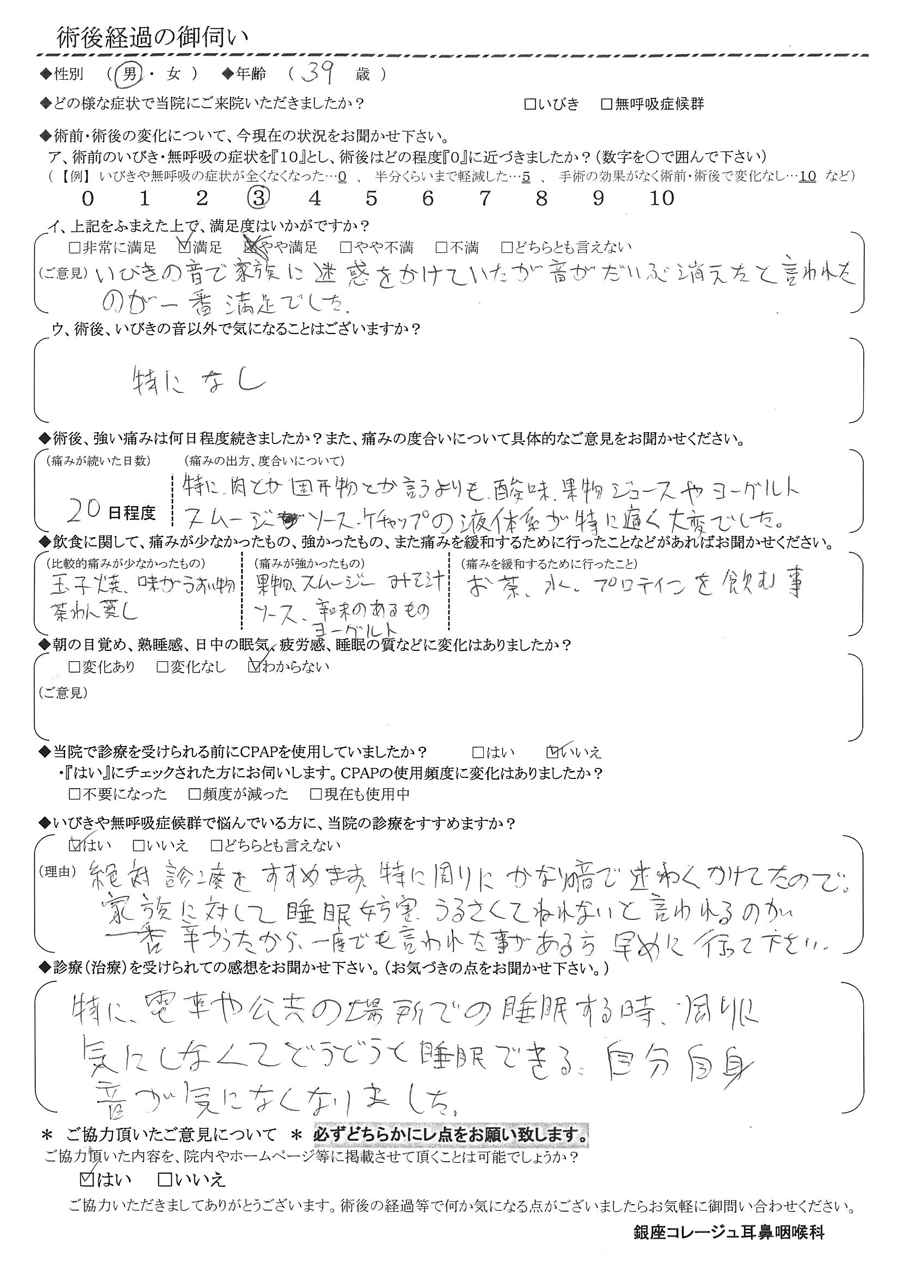 術後経過の御伺い
◆性別 (男・ 女 ) ◆年齢 ( 39 歳 )
◆どの様な症状で当院にご来院いただきましたか? □いびき □無呼吸症候群
◆術前・術後の変化について、今現在の状況をお聞かせ下さい。
ア、術前のいびき・無呼吸の症状を『10』とし、術後はどの程度『0』に近づきましたか?(数字を〇で囲んで下さい)
(【例】 いびきや無呼吸の症状が全くなくなった…0 、 半分くらいまで軽減した…5 、 手術の効果がなく術前・術後で変化なし…10 など)
0 1 2 3 4 5 6 7 8 9 10
イ、上記をふまえた上で、満足度はいかがですか?
□非常に満足 ☑満足 ☒やや満足 □やや不満 □不満 □どちらとも言えない
(ご意見) いびきの音で家族に迷惑をかけていたが音がだいぶ消えたと言われた
のが一番満足でした。
ウ、術後、いびきの音以外で気になることはございますか?
特になし
◆術後、強い痛みは何日程度続きましたか?また、痛みの度合いについて具体的なご意見をお聞かせください。
(痛みが続いた日数) (痛みの出方、度合いについて)
20日程度 特に、肉とか固形物とか言うよりも、酸味、果物ジュースやヨーグルト
スムージー ソース、ケチャップの液体系が特に痛く大変でした。
◆飲食に関して、痛みが少なかったもの、強かったもの、また痛みを緩和するために行ったことなどがあればお聞かせください。
(比較的痛みが少なかったもの) (痛みが強かったもの) (痛みを緩和するために行ったこと)
玉子焼、味がうすい物 果物、スムージー みそ汁 お茶、水、プロテインを飲む事
茶わん蒸し ソース、辛味のあるもの
ヨーグルト
◆朝の目覚め、熟睡感、日中の眠気、疲労感、睡眠の質などに変化はありましたか?
□変化あり □変化なし ☑わからない
(ご意見)
◆当院で診療を受けられる前にCPAPを使用していましたか? □はい ☑いいえ
・『はい』にチェックされた方にお伺いします。CPAPの使用頻度に変化はありましたか?
□不要になった □頻度が減った □現在も使用中
◆いびきや無呼吸症候群で悩んでいる方に、当院の診療をすすめますか?
☑はい □いいえ □どちらとも言えない
(理由) 絶対診療をすすめます。特に周りにかなり音で迷わくかけてたので。
家族に対して睡眠妨害、うるさくてねれないと言われるのが
一番辛かったから、一度でも言われた事がある方早めに行って下さい。
◆診療(治療)を受けられての感想をお聞かせ下さい。(お気づきの点をお聞かせ下さい。)
特に、電車や公共の場所での睡眠する時、周りに
気にしなくてどうどうと睡眠できる。自分自身
音が気になくなりました。
* ご協力頂いたご意見について * 必ずどちらかにレ点をお願い致します。
ご協力頂いた内容を、院内やホームページ等に掲載させて頂くことは可能でしょうか?
☑はい □いいえ
ご協力いただきましてありがとうございます。術後の経過等で何か気になる点がございましたらお気軽に御問い合わせください。
銀座コレージュ耳鼻咽喉科